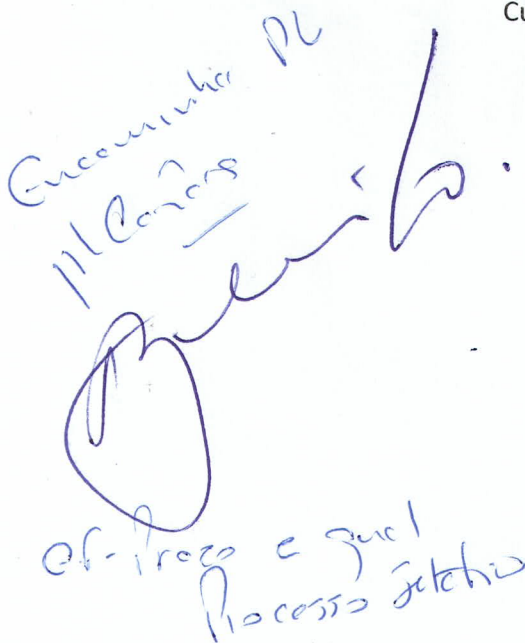 Cu
Encaminhar PL
p/ Câmara
Prazo e qual
Processo Seletivo